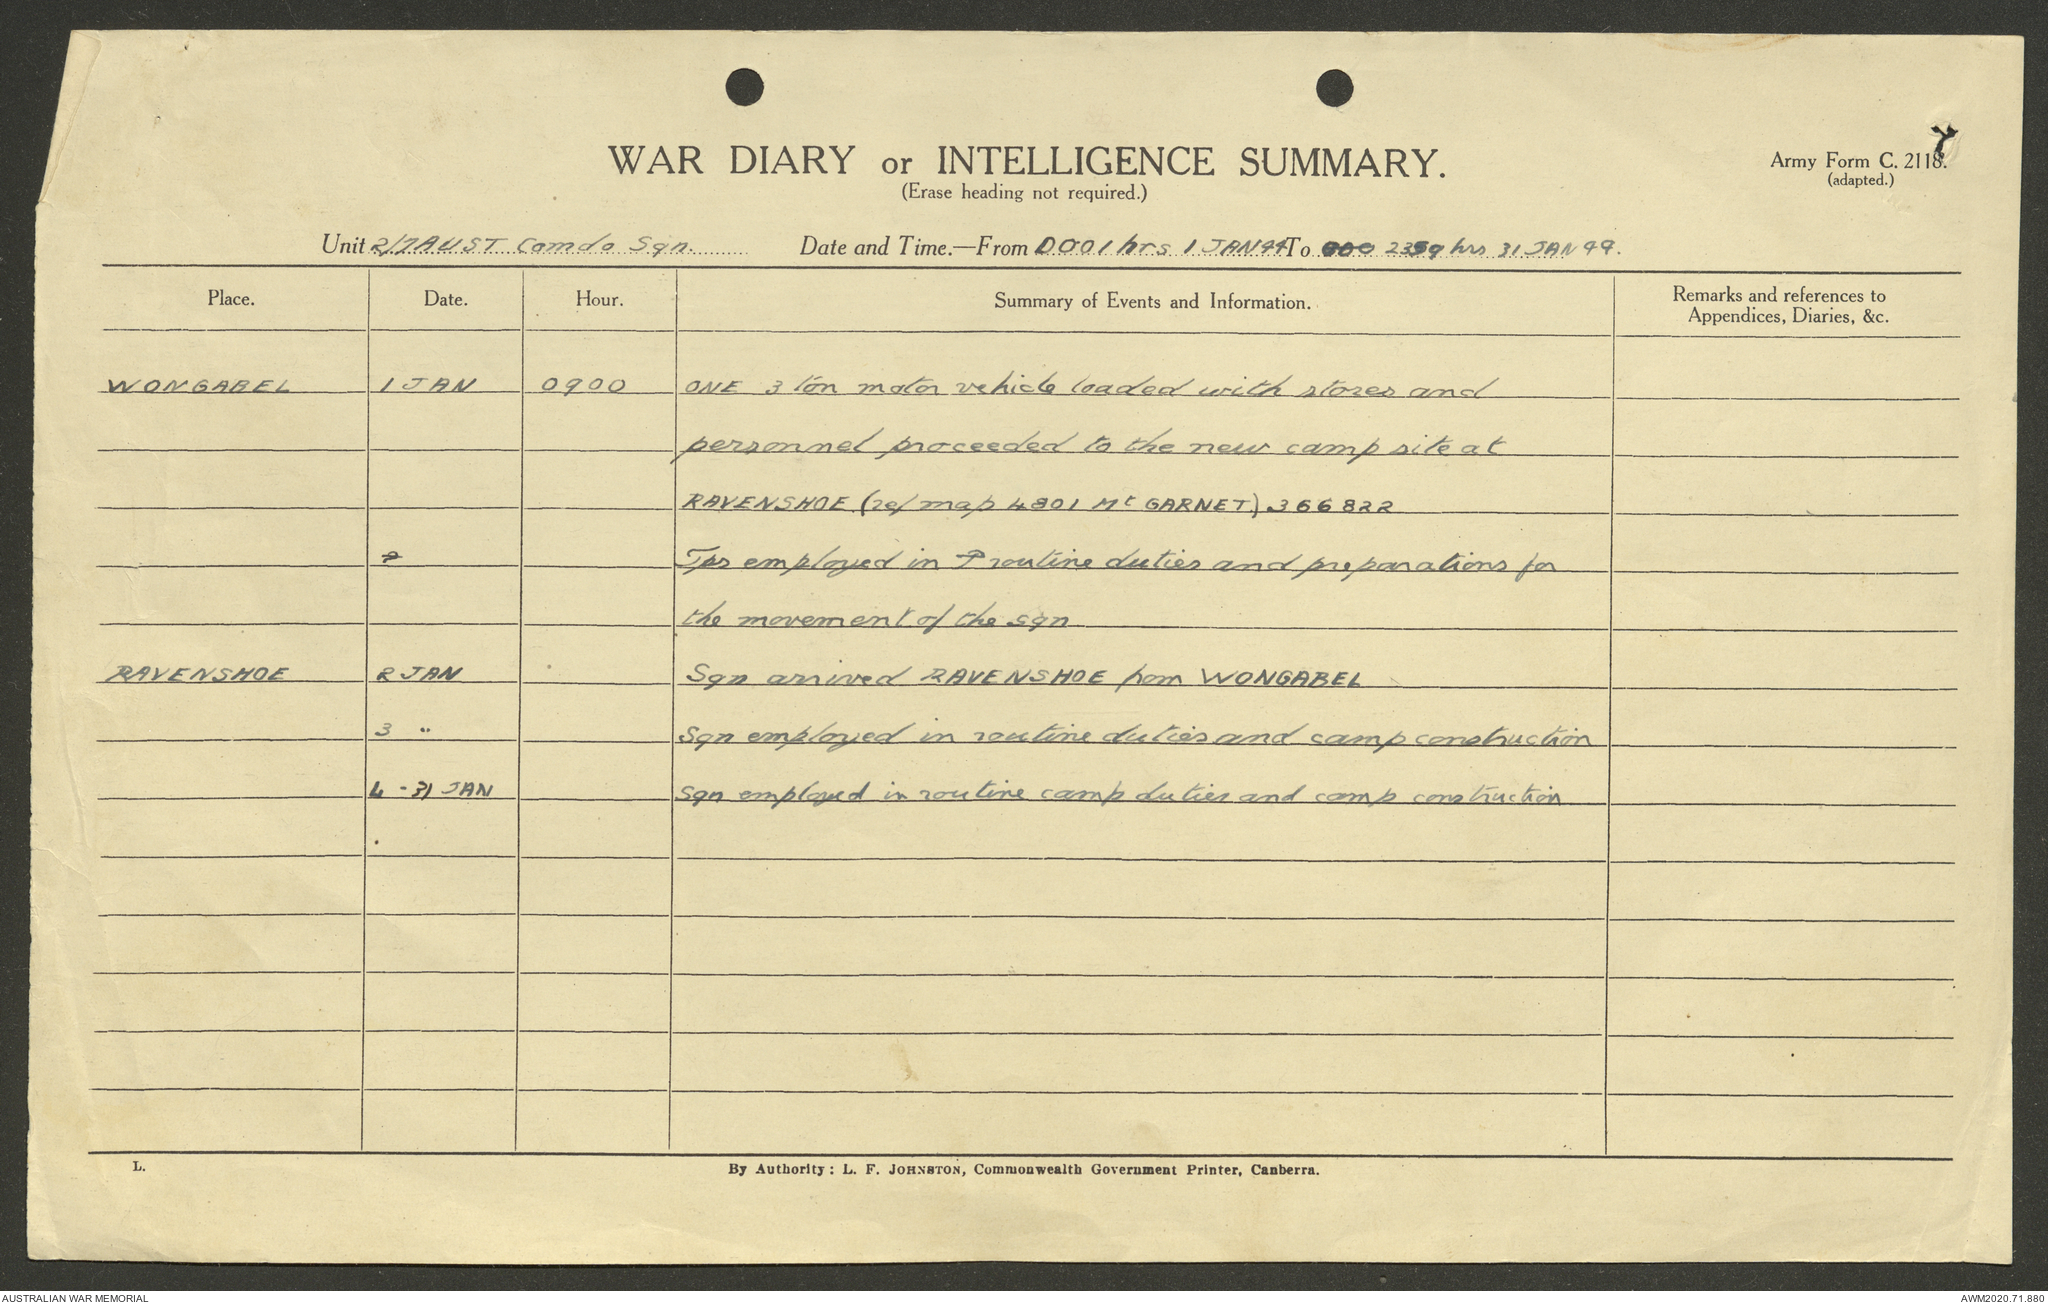 WAR DIARY or INTELLIGENCE SUMMARY.
(Erase heading not required.)
Army Form C. 2118.
(adapted.)
Unit 2/7 AUST Comdo Sqn. Date and Time.—From 0001 hrs 1 JAN 44 To 000 2359 hrs 31 JAN 44.
Place. Date. Hour. Summary of Events and Information. Remarks and references to
Appendices, Diaries, &c.
WONGABEL 1 JAN 0900 ONE 3 ton motor vehicle loaded with stores and
personnel proceeded to the new camp site at
RAVENSHOE (ref map 4801 Mt GARNET) 366822
2 Tps employed in P routine duties and preparations for
the movement of the sqn
RAVENSHOE 2 JAN Sqn arrived RAVENSHOE from WONGABEL
3 " Sqn employed in routine duties and camp construction
4 - 31 JAN Sqn employed in routine camp duties and camp construction
L. By Authority: L. F. JOHNSTON, Commonwealth Government Printer, Canberra.
AUSTRALIAN WAR MEMORIAL AWM2020.71.880